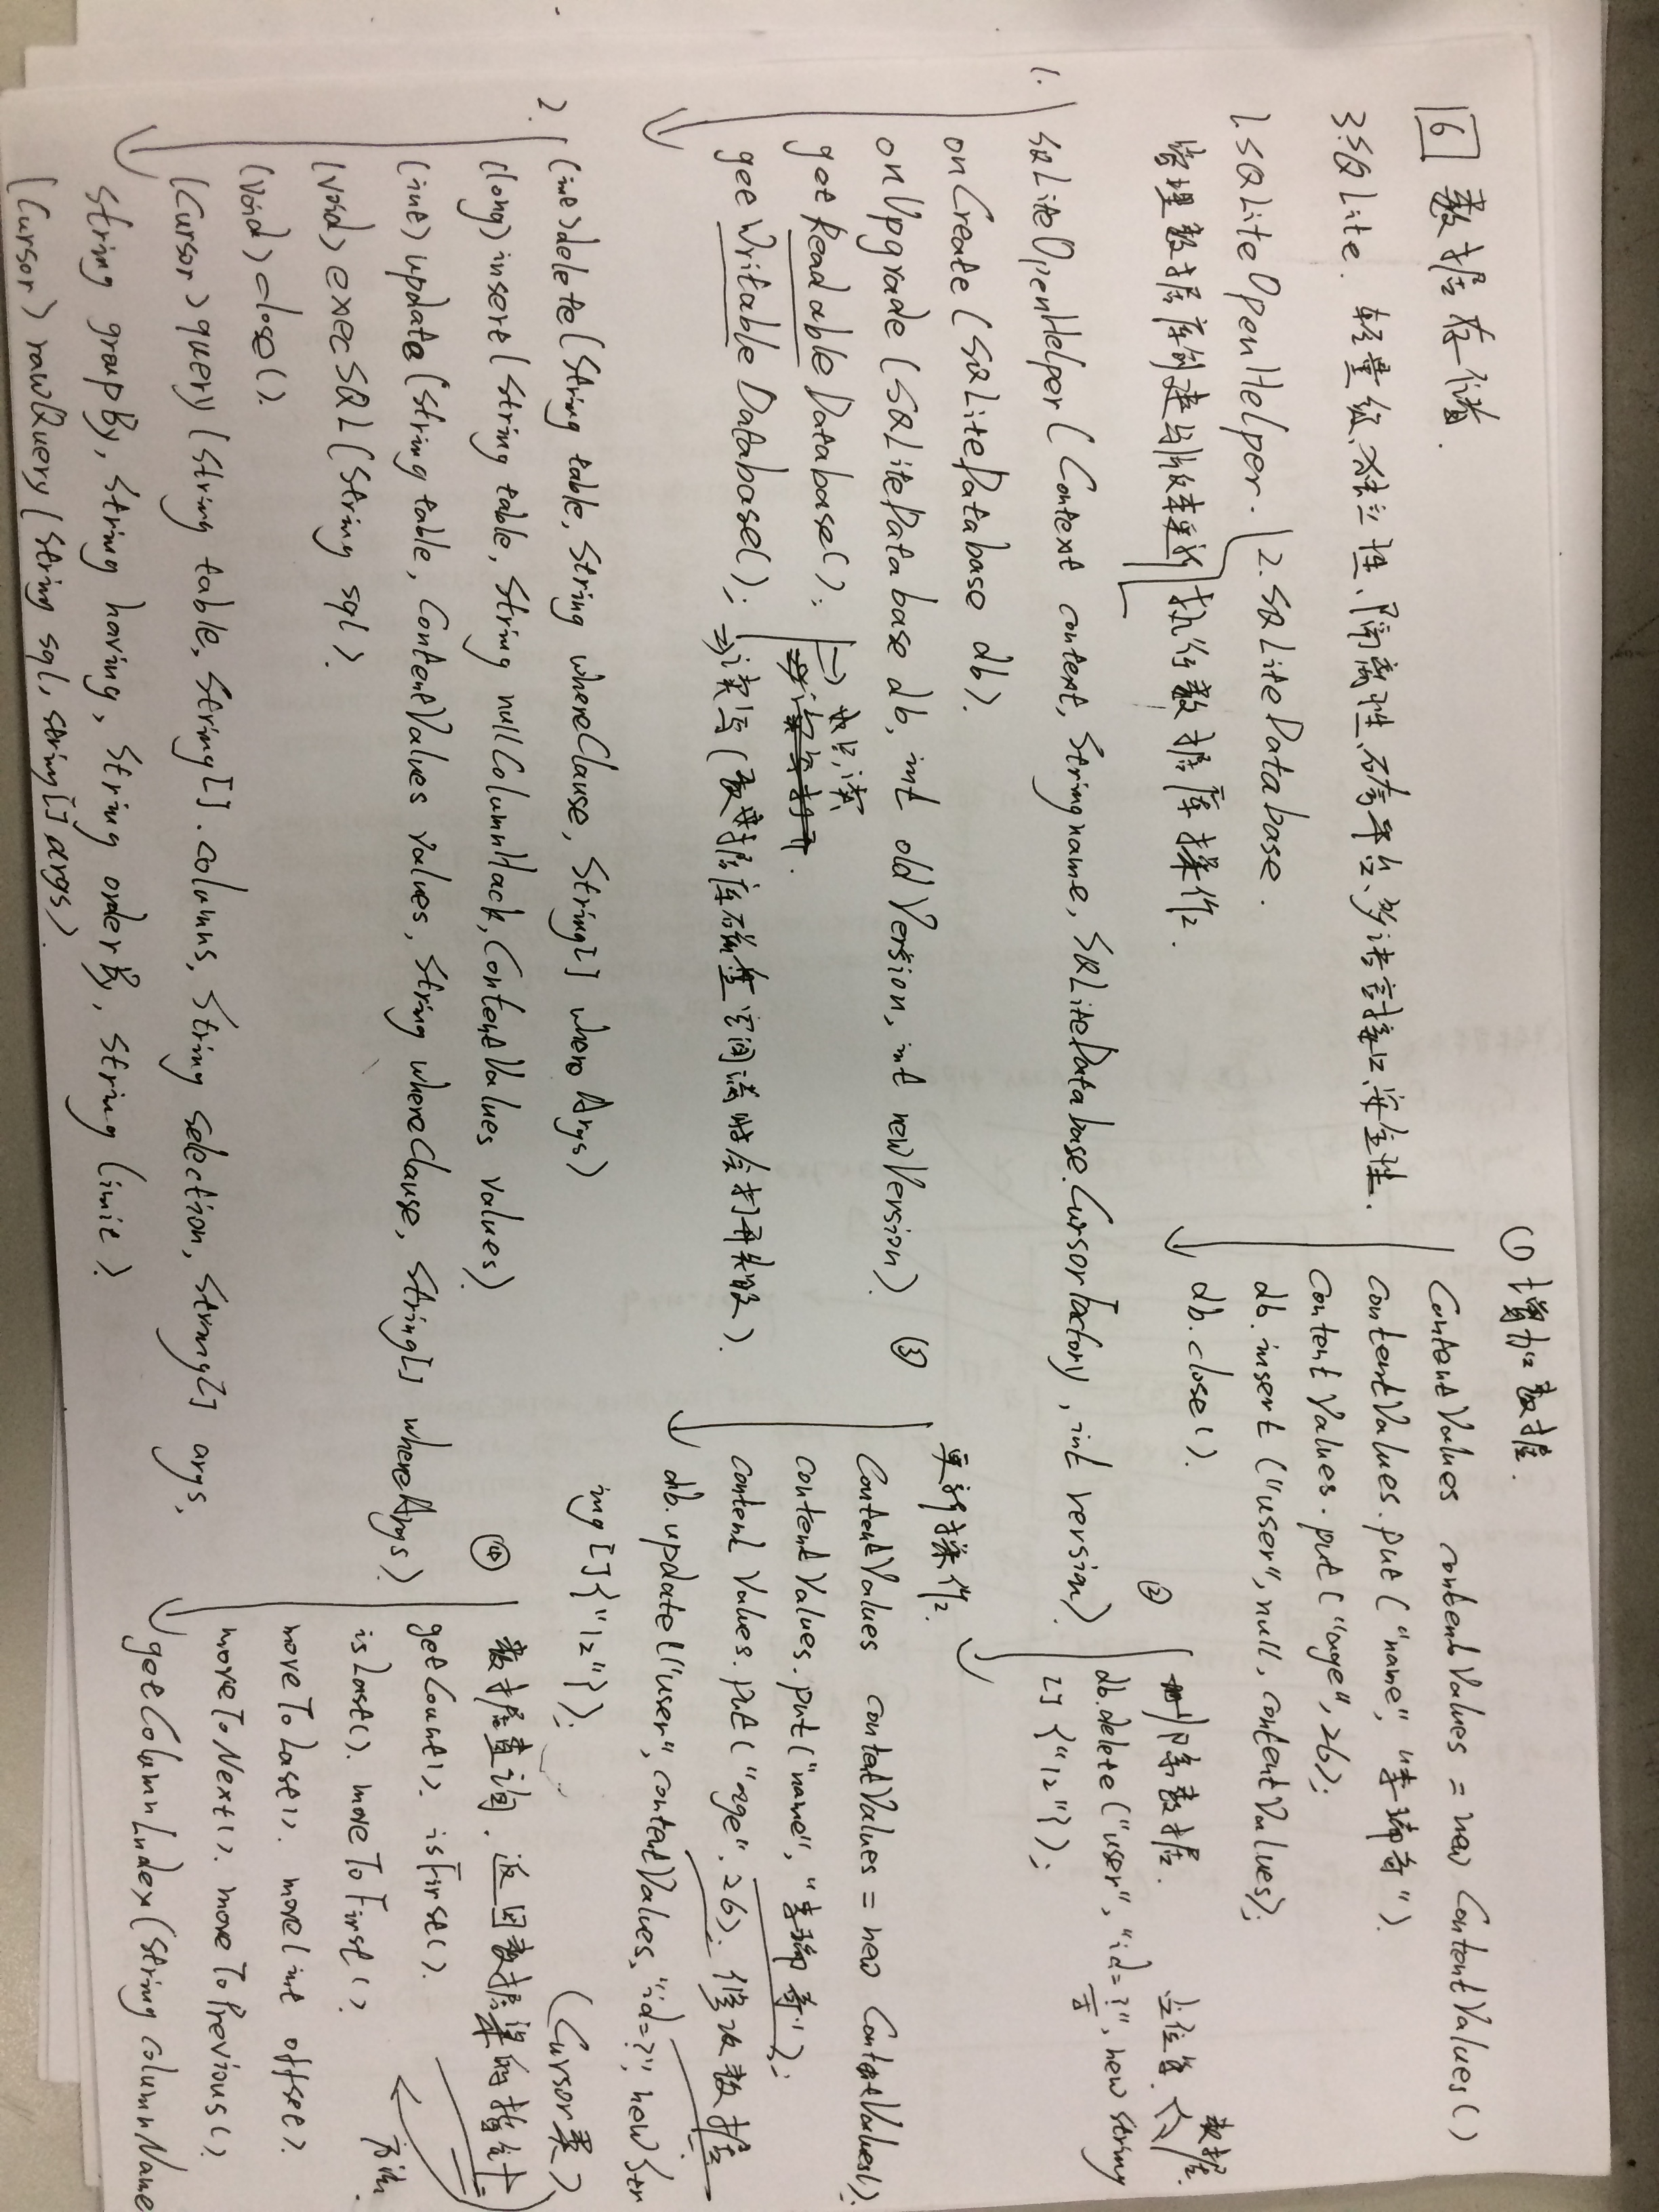 6 数据存储.
3.SQLite. 轻量级、独立性、隔离性、跨平台、多语言接口、安全性.
1.SQLiteOpenHelper. 2.SQLiteDatabase.
管理数据库创建与版本更新 执行数据库操作.
1. SQLiteOpenHelper(Context context, String name, SQLiteDatabase.CursorFactory, int version)
onCreate(SQLiteDatabase db).
onUpgrade(SQLiteDatabase db, int oldVersion, int newVersion)
getReadableDatabase(): 只读
getWritableDatabase(): ⇒读写(数据库磁盘空间满时会打开失败).
2. (int)delete(String table, String whereClause, String[] whereArgs)
(long)insert(String table, String nullColumnHack, ContentValues values)
(int)update(String table, ContentValues values, String whereClause, String[] whereArgs)
(void)execSQL(String sql).
(void)close().
(Cursor)query(String table, String[] columns, String selection, String[] args,
String groupBy, String having, String orderBy, String limit)
(Cursor)rawQuery(String sql, String[] args).
① 增加数据.
ContentValues contentValues = new ContentValues()
ContentValues.put("name", "李瑞奇")
ContentValues.put("age", 26);
db.insert("user", null, contentValues);
db.close().
② 删除数据. 占位符 数据.
db.delete("user", "id=?", new String
[] {"12"});
③ 更新操作.
ContentValues contentValues = new ContentValues();
contentValues.put("name", "李瑞奇");
contentValues.put("age", 26); 修改数据
db.update("user", contentValues, "id=?", new Str
ing[]{"12"});
④ 数据查询. 返回数据集的指针 (Cursor类)
getCount(). isFirst(). 方法.
isLast(). moveToFirst().
moveToLast(). move(int offset).
moveToNext(). moveToPrevious().
getColumnIndex(String columnName